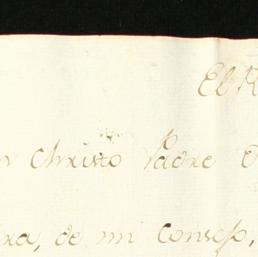 El R
n Christo Padre O
ra, de mi Consejo,